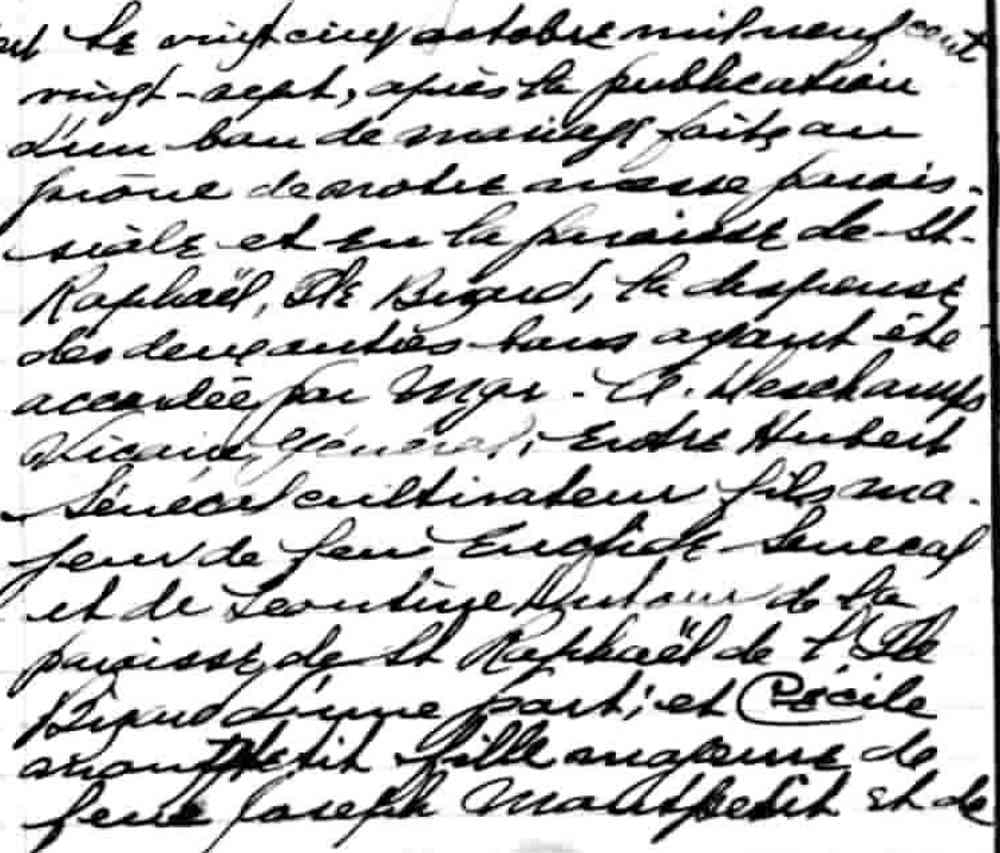 Le vingt cinq octobre mil neuf cent
vingt-sept, après la publication
d'un ban de mariage faite au
prône de notre messe parois-
siale et en la paroisse de St-
Raphaël, Ile Bizard, la dispense
des deux autres bans ayant été
accordée par Mgr. A. Deschamps
Vicaire Général; entre Hubert
Sénécal cultivateur fils ma-
jeur de feu Euclide Senecal
et de Leontine Dutour de la
paroisse de St Raphaël de l'Ile
Bizard d'une part; et Cécile
Montpetit fille majeure de
feue Joseph Montpetit et de